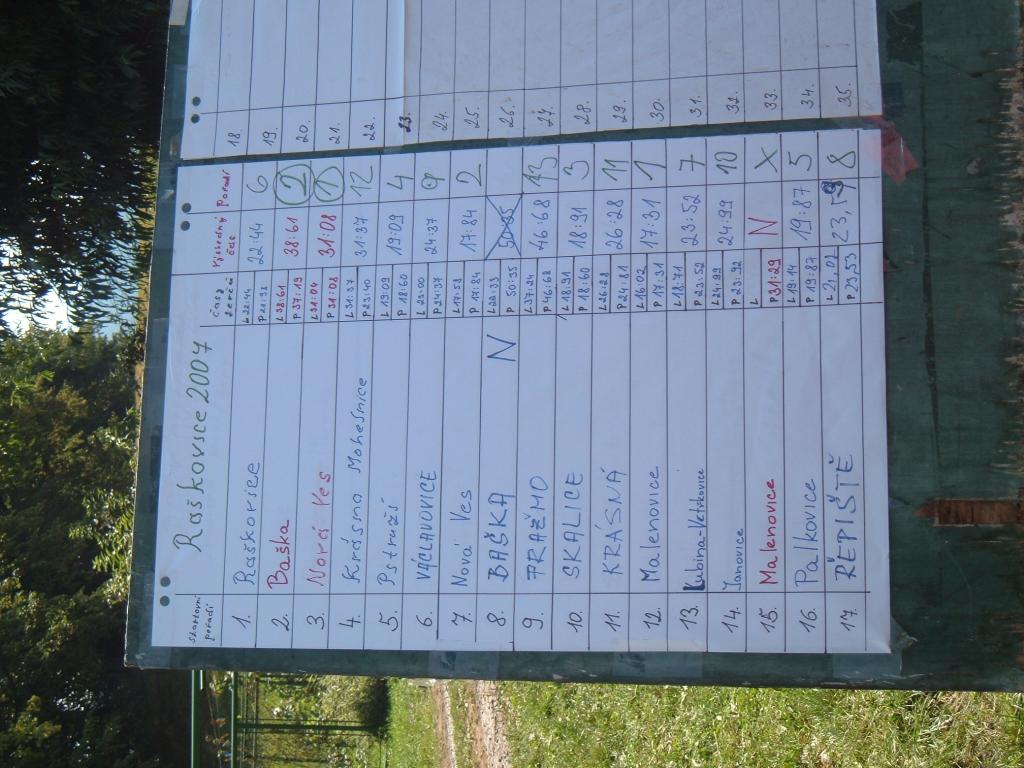 Raškovice 2007
startovní pořadí časy terčů výsledný čas Pořadí
1. Raškovice L 22:44 P 21:38 22:44 6
2. Baška L 38:61 P 37:19 38:61 2
3. Nová Ves L 31:04 P 31:08 31:08 1
4. Krásna Mohelnice L 31:37 P 23:40 31:37 12
5. Pstruží L 19:09 P 18:60 19:09 4
6. VÁCLAVOVICE L 23:00 P 24:37 24:37 9
7. Nová Ves L 17:58 P 17:84 17:84 2
8. BAŠKA N P 50:35
9. PRAŽMO L 37:24 P 46:68 46:68 13
10. SKALICE L 18:91 P 18:60 18:91 3
11. KRÁSNÁ L 26:28 P 24:81 26:28 11
12. Malenovice L 16:02 P 17:31 17:31 1
13. Lubina-Větřkovice L 18:71 P 23:52 23:52 7
14. Janovice L 24:99 P 23:92 24:99 10
15. Malenovice L P 31:29 N X
16. Palkovice L 19:14 P 19:87 19:87 5
17. ŘEPIŠTĚ L 21,02 P 23,53 8
18.
19.
20.
21.
22.
23.
24.
25.
26.
27.
28.
29.
30.
31.
32.
33.
34.
35.